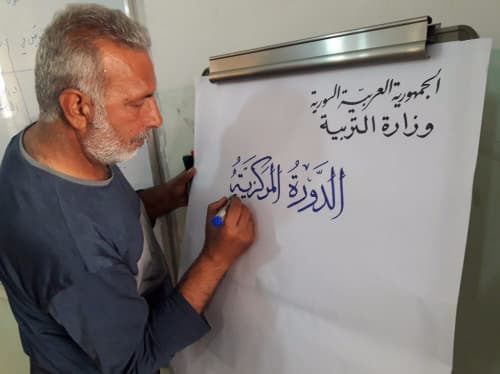 الجمهورية العربية السورية
وزارة التربية
الدَّورَةُ المَركَزيَّةُ